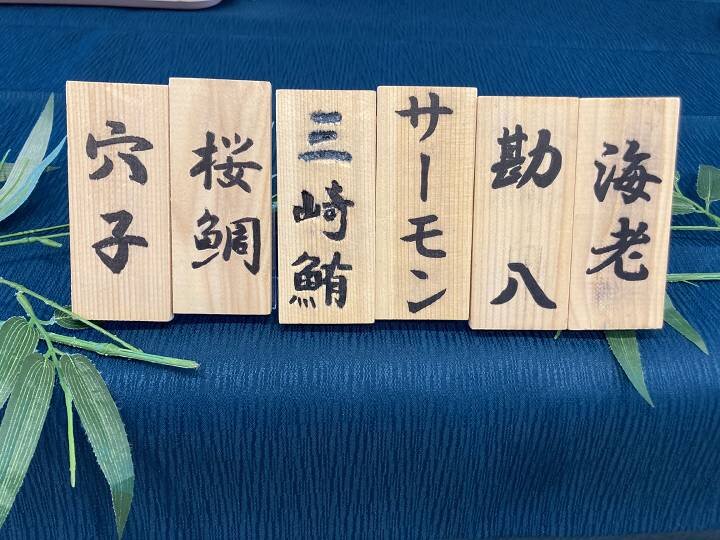 穴子
桜鯛
三崎鮪
サーモン
勘八
海老